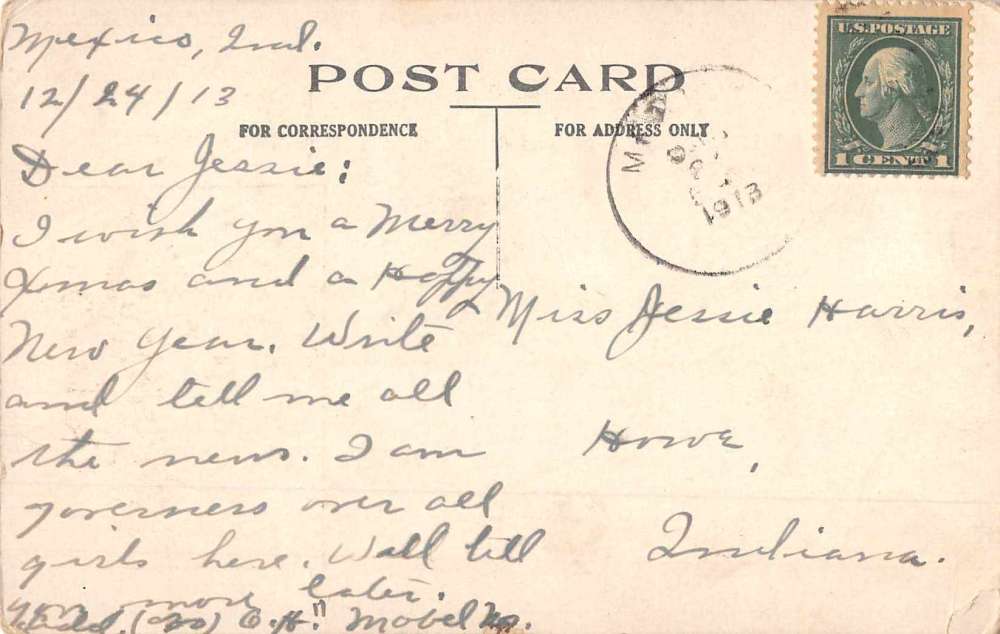 Mexico, Ind.
12/24/13
POST CARD
FOR CORRESPONDENCE
FOR ADDRESS ONLY
U.S. POSTAGE
1 CENT 1
1913
Dear Jessie:
I wish you a Merry
Xmas and a Happy
New Year. Write
and tell me all
the news. I am
governess over all
girls here. Will tell
you more later.
Mabel
Miss Jessie Harris,
Howe,
Indiana.